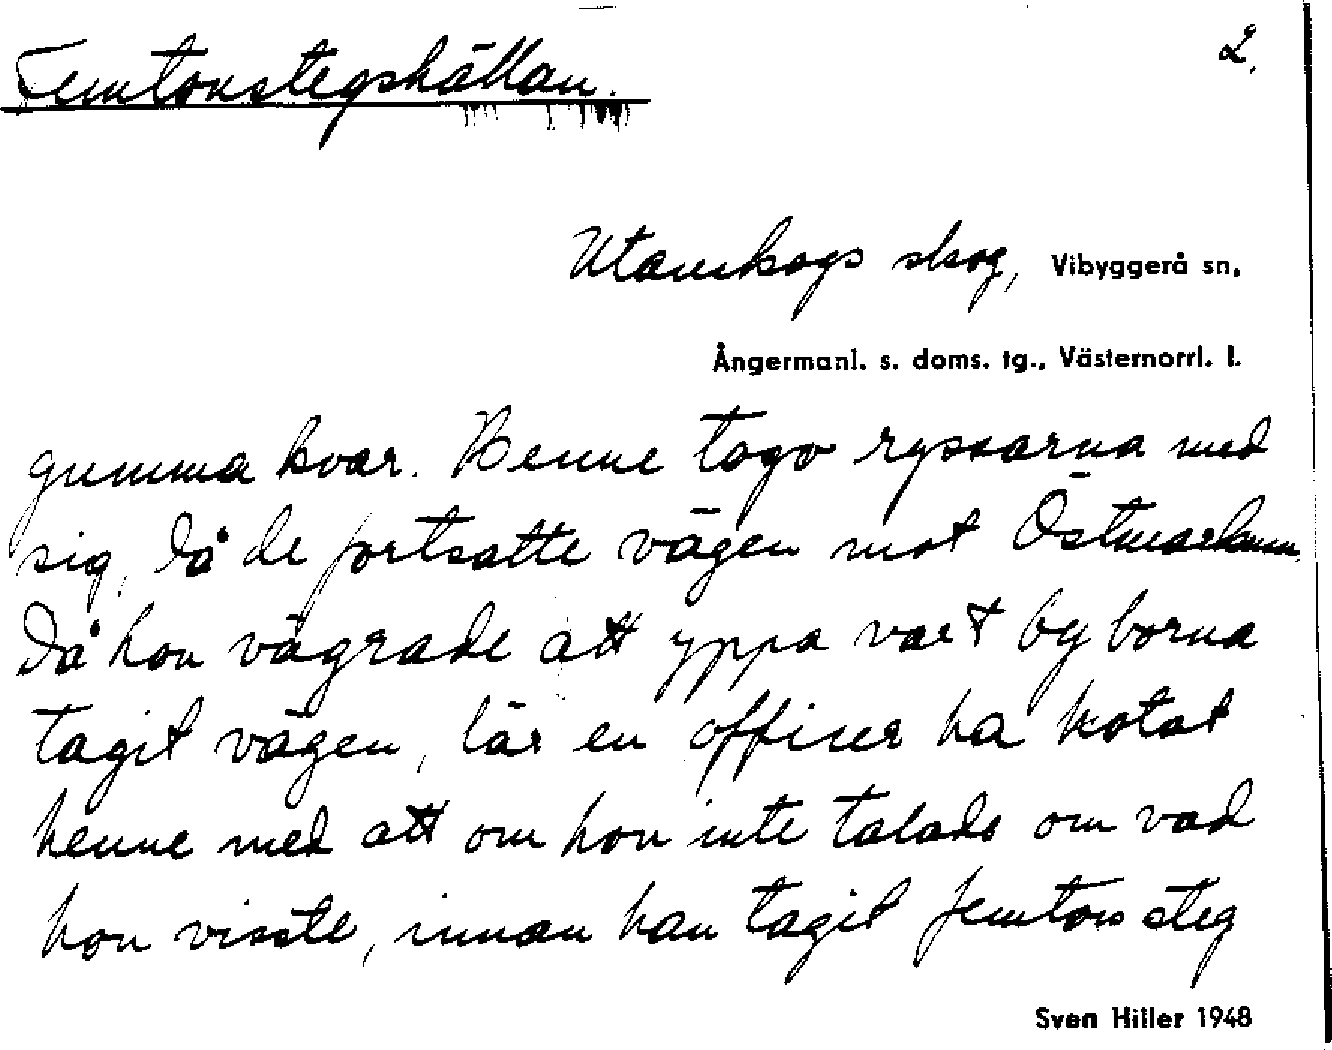 Femtonstegshällan.
2.
Utanskogs skog, Vibyggerå sn,
Ångermanl. s. doms. tg., Västernorrl. l.
gumma kvar. Henne togo ryssarna med
sig, då de fortsatte vägen mot Östmarkum
Då hon vägrade att yppa vart byborna
tagit vägen, lär en officer ha hotat
henne med att om hon inte talade om vad
hon visste, innan han tagit femton steg
Sven Hiller 1948